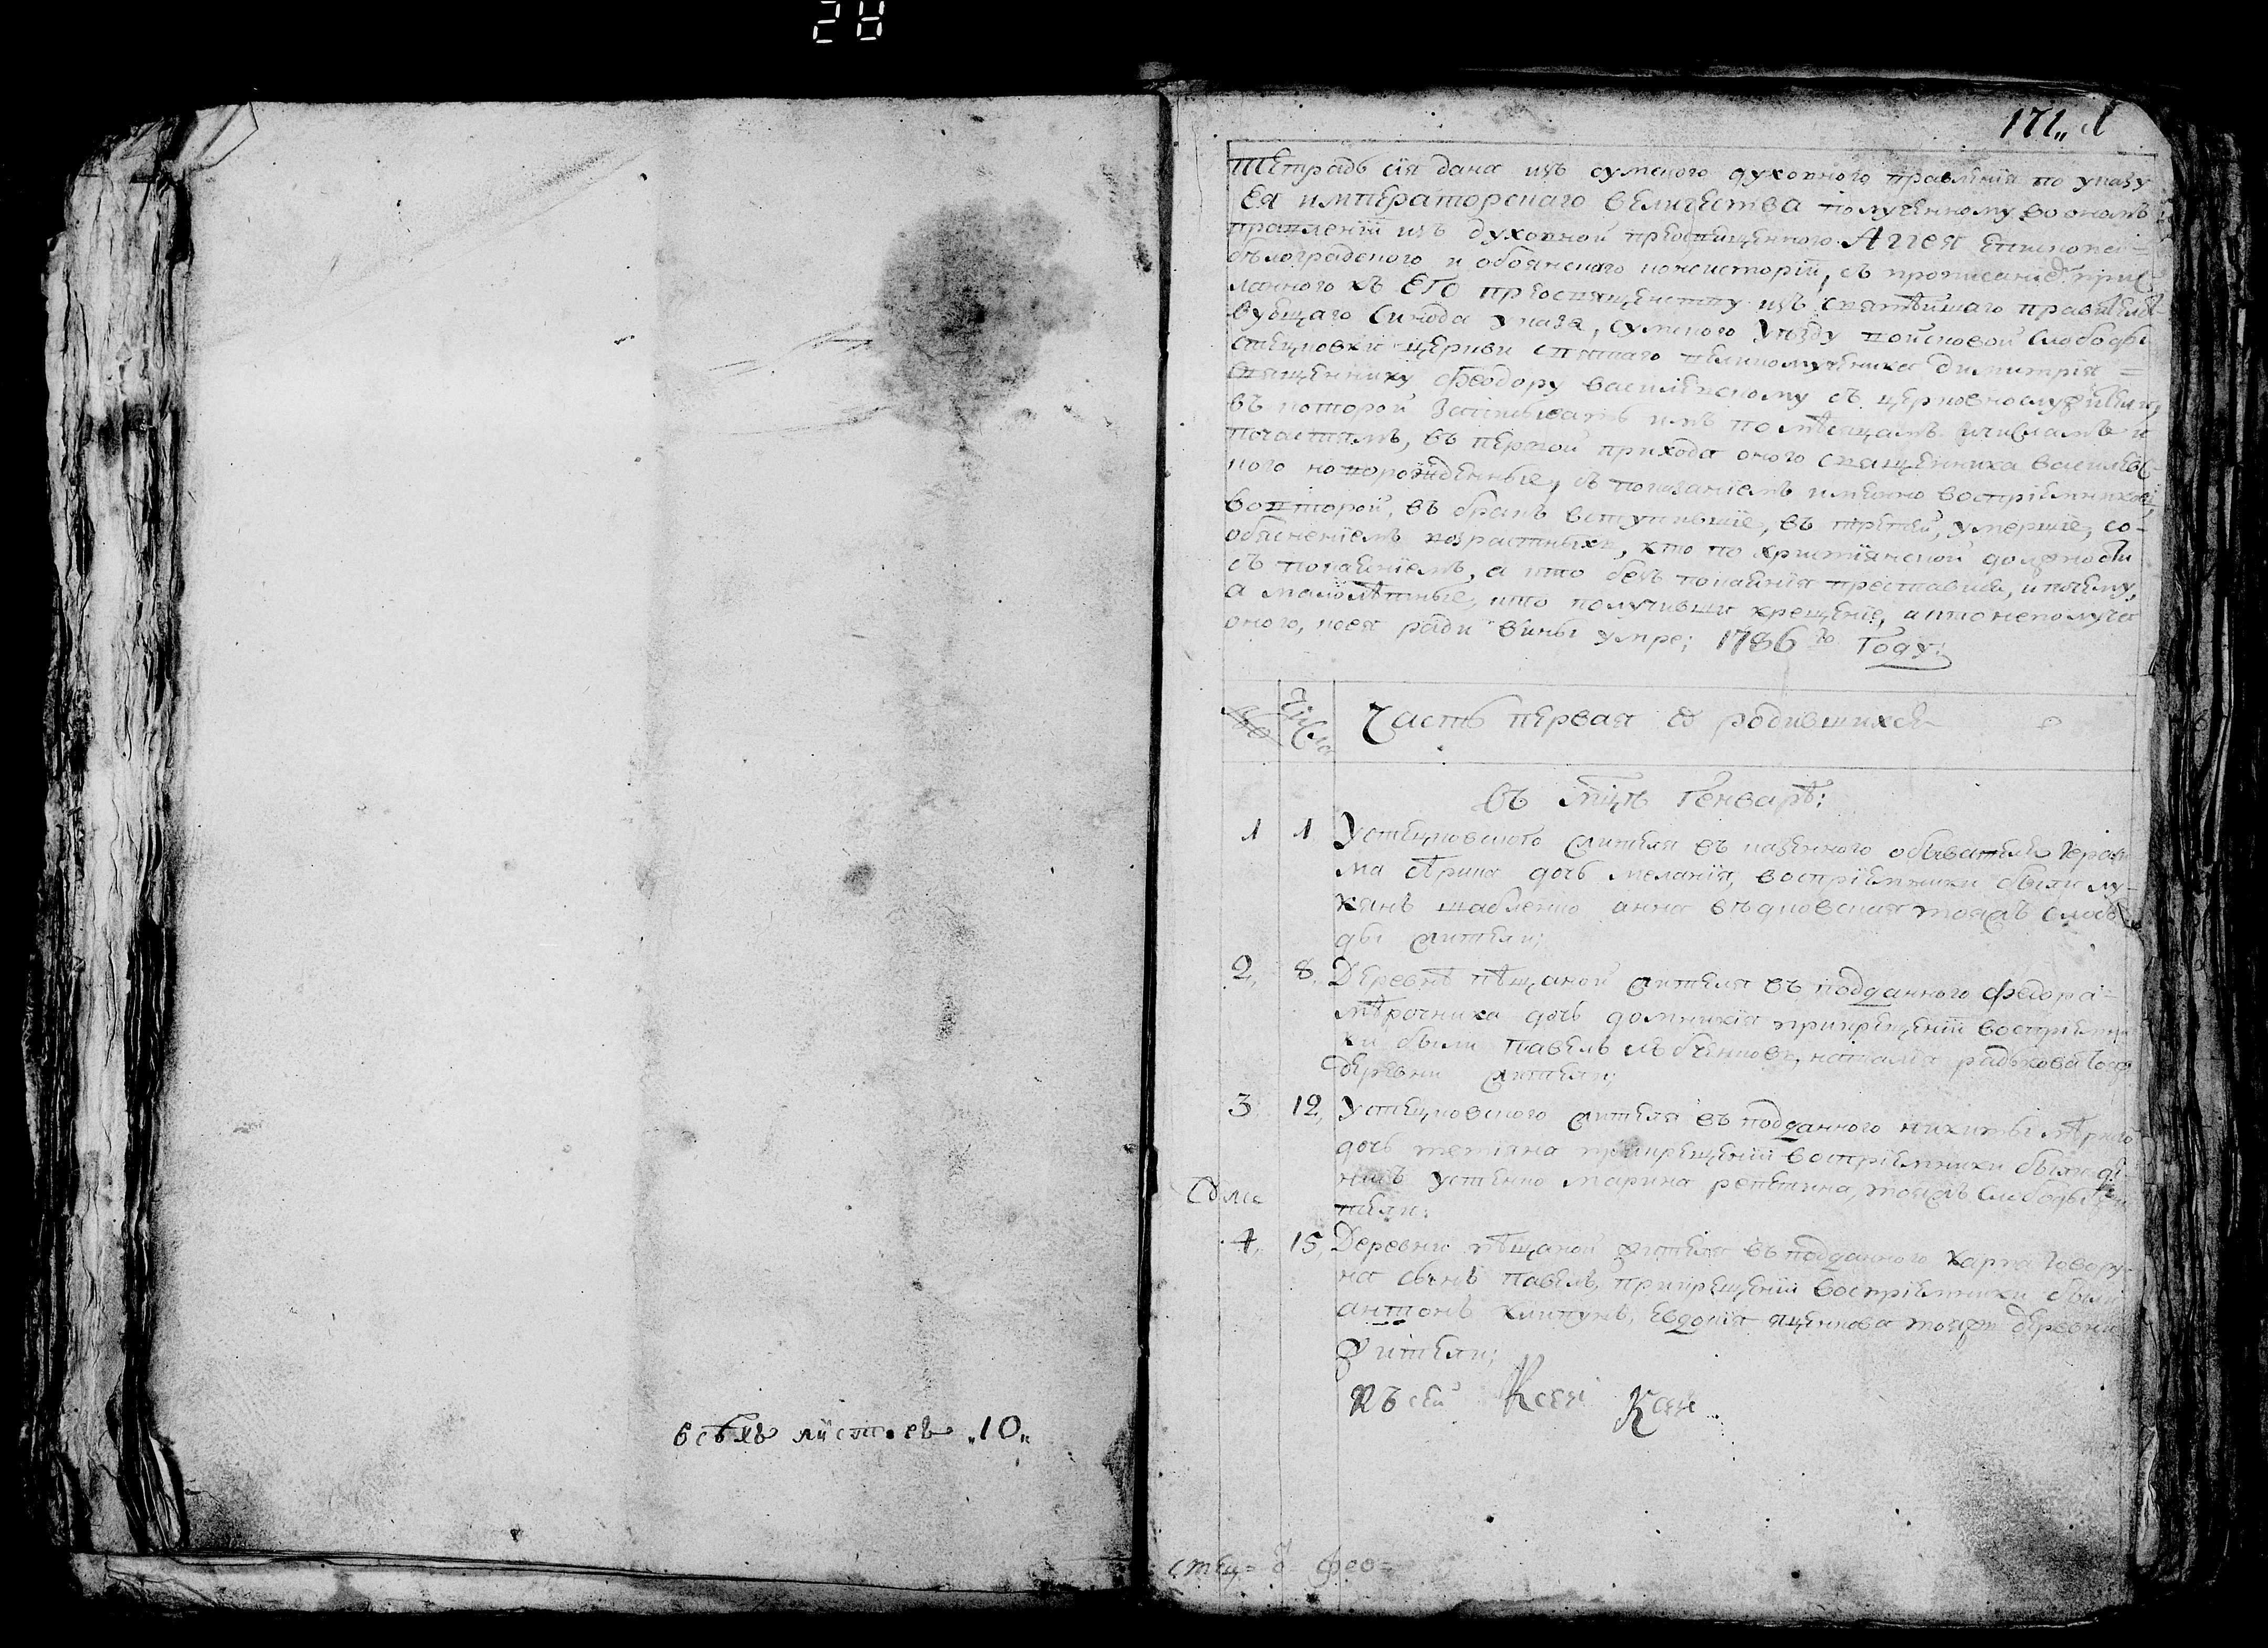 28
всѣхъ листовъ „10„
171„
Тетрадь сія дана изъ сумского духовного правленія по указу
Ея императорскаго величества полученному во ономъ
правленіи изъ духовной преосвященного Аггея епископа
бѣлоградского и обоянского консисторіи, съ прописаніем прис
ланного къ Его преосвященству изъ святѣйшаго правител
вующаго Синода указа, сумского уѣзду войсковой слободы
стецковки церкви святаго великомученика димитрія =
священнику Феодору василевскому съ церковнослужители,
въ которой записывать имъ по мѣсяцамъ числамъ и
почастямъ, въ первой прихода оного священника василевс
кого новорожденные, съ показаніемъ имянно воспріемниковъ,
во второй, въ бракъ вступившіе, въ третей, умершіе, со-
обясненіемъ возрастныхъ, кто по христіянской должности
съ покаяніемъ, а кто безъ покаянія преставися, и почему,
а малолѣтные, кто получивши крещеніе, а кто неполуча
оного, коея ради вины умре; 1786го Году:
Числа
Часть первая о родившихся
въ мцѣ Генварѣ:
1 1 Устецковского жителя въ казенного обывателя Гераси
ма сѣрика дочь меланія, воспріемники были лу-
кянъ шабленко анна въдновская тояжъ слобо
ды жители;
2, 8, Деревнѣ пѣщаной жителя въ подданного федора =
мѣрочника дочь домникія прикрещеніи воспріемни
ки были павелъ наталія радкова тояж
деревни жители;
3 12, Устецковского жителя въ подданного никиты
дочь тетяна прикрещеніи воспріемники были
устенко марина репетина, тояжъ слободы жи
тели:
4, 15, Деревни пѣщаной жителя въ подданного карпа Говору-
на сынъ павелъ, прикрещеніи воспріемники были
антонъ хлипунъ, евдокія яценкова тояжъ деревни
жители;
Къ сей Ксей Ксей
стец= = Фео=